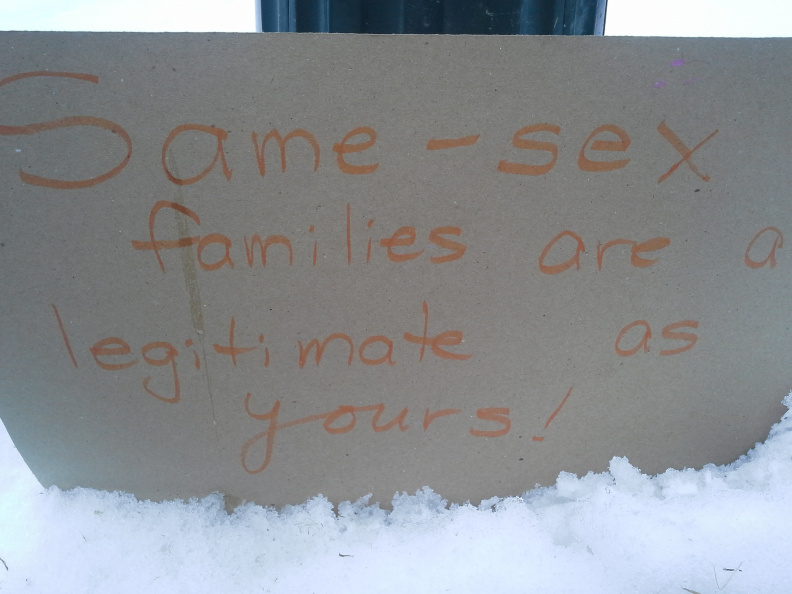 Same-sex
families are a
legitimate as
yours!